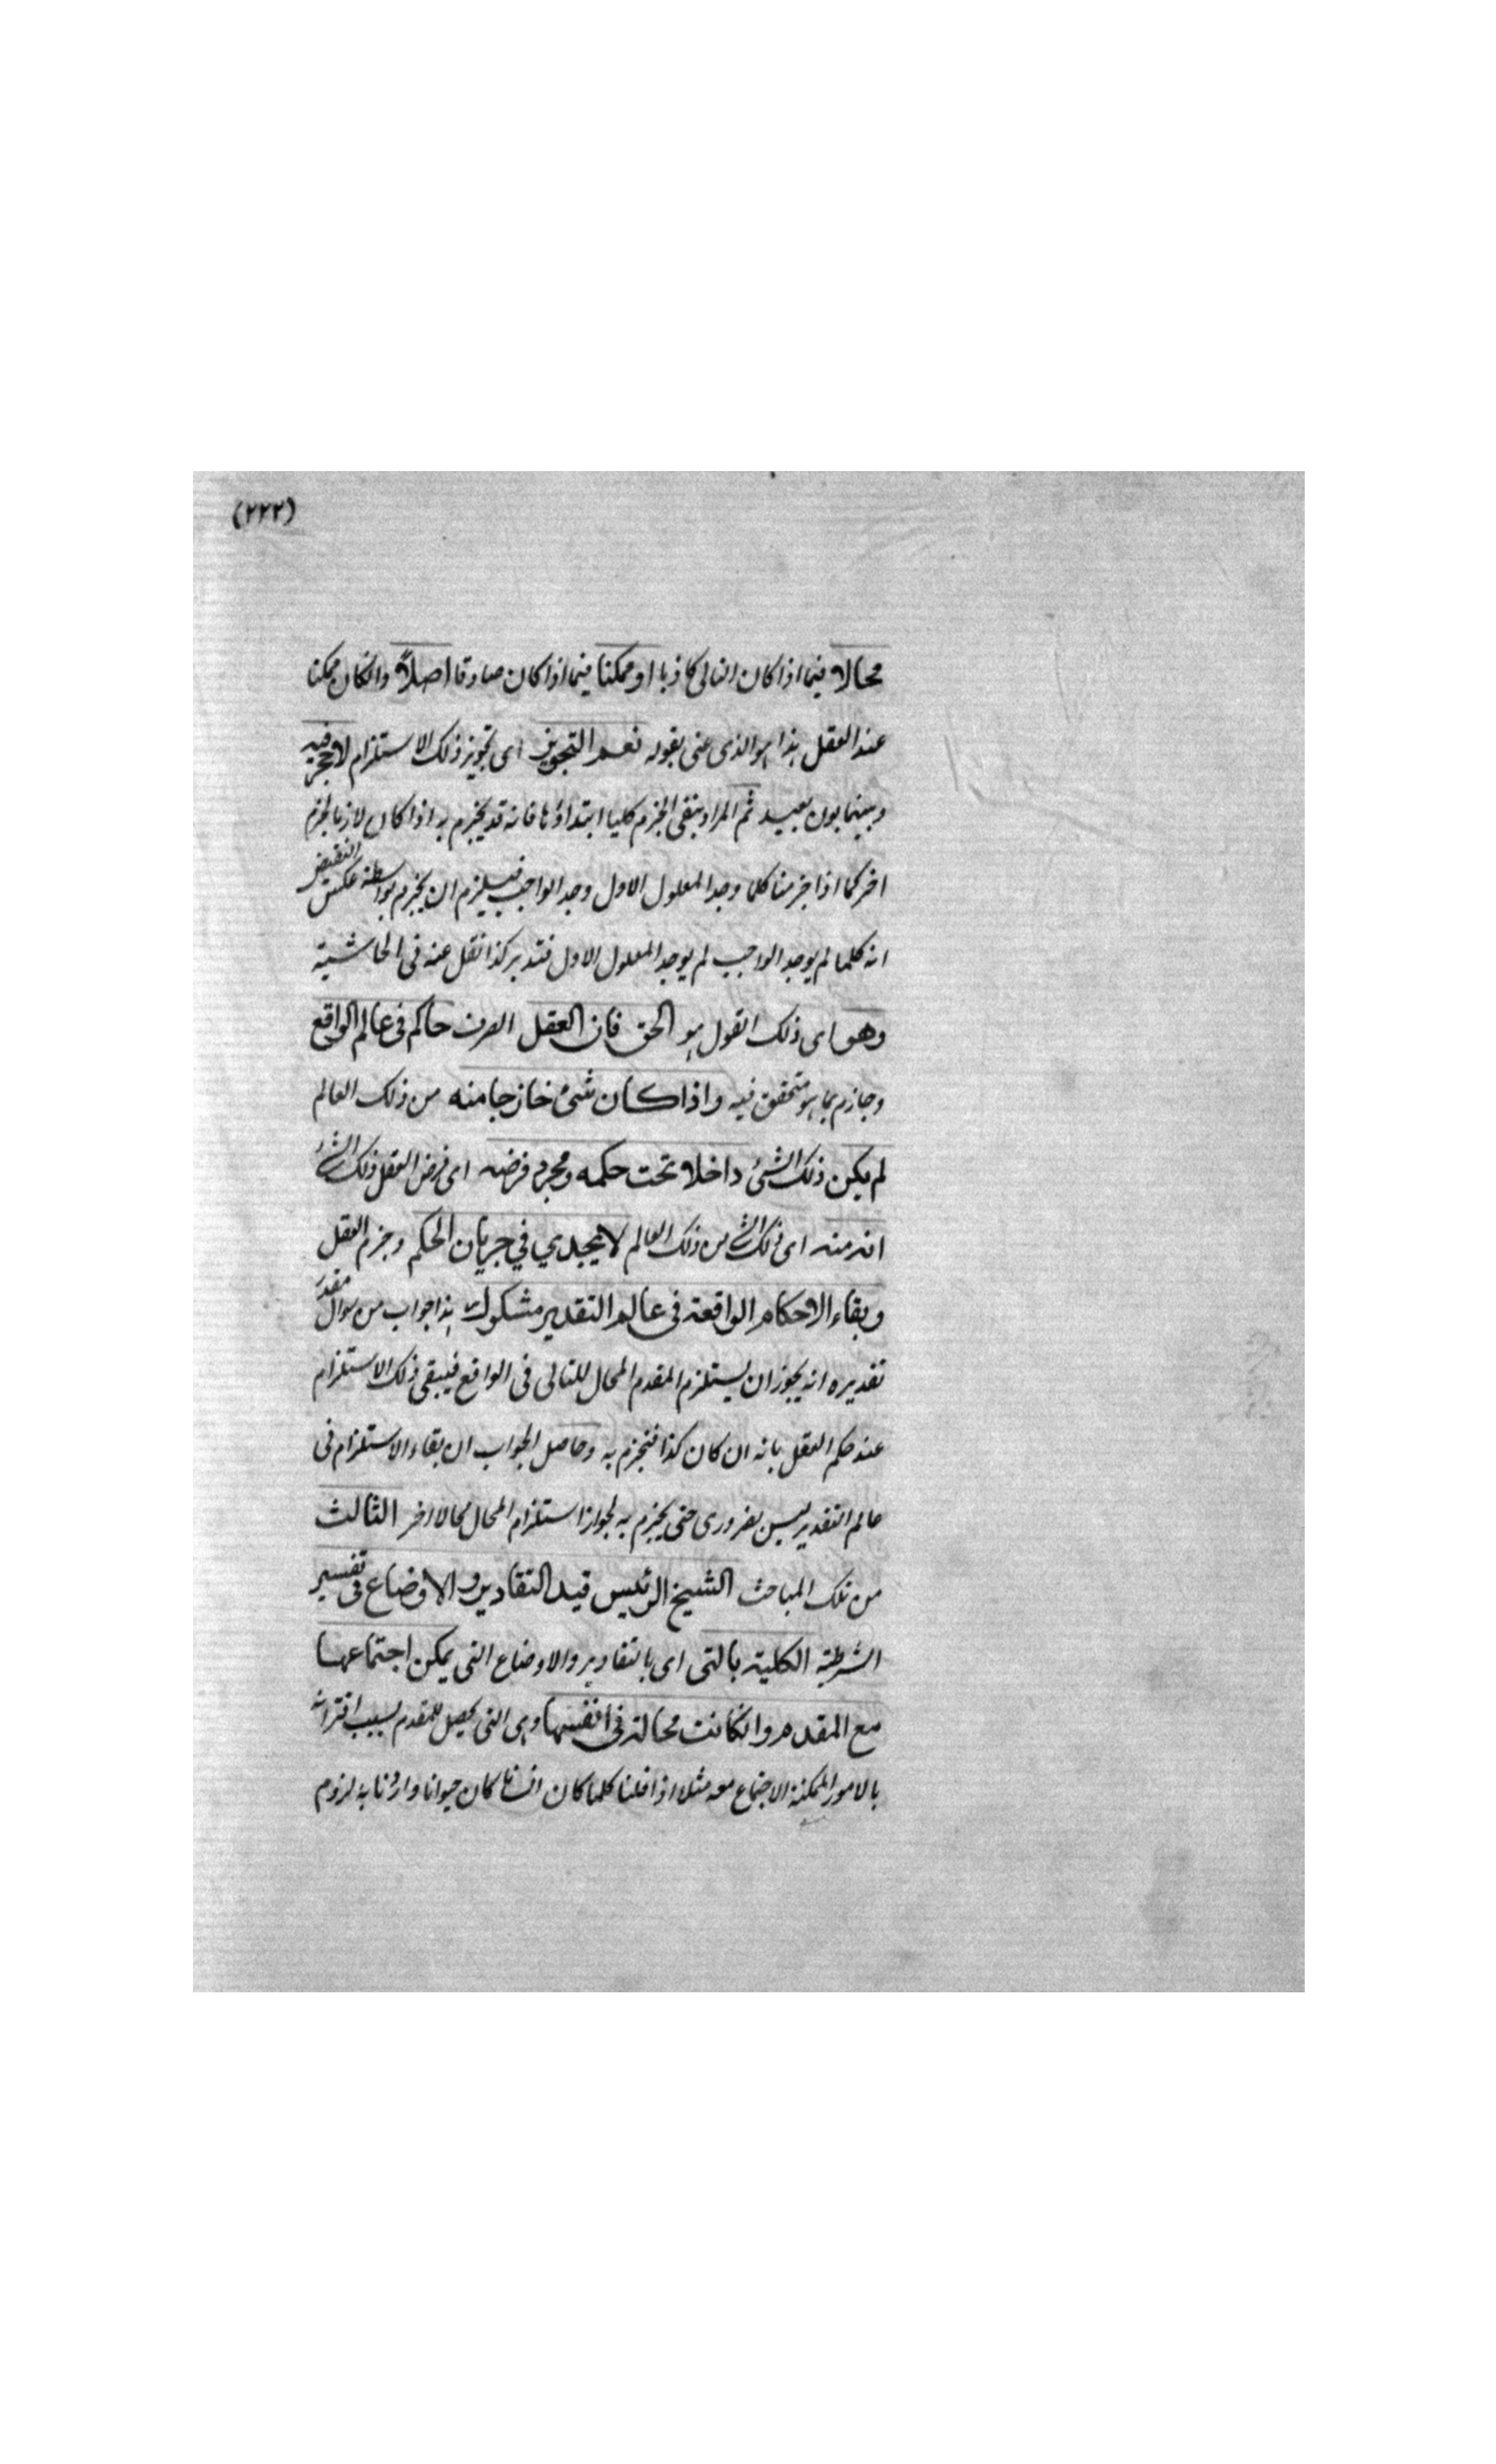 (٢٢٢)
محالا فيما اذا كان التالى كاذبا او ممكنا فيما اذا كان صادقا اصلاً وانكان ممكنا
عند العقل هذا هو الذى عنى بقوله نعم التجويز اى تجويز ذلك الاستلزام لا حجر فيه
وبينهما بون بعيد ثم المراد بنفى الجزم كليا ابتداؤنا فانه قد يجزم به اذا كان لازما لجزم
اخر كما اذا جزمنا كلما وجد المعلول الاول وجد الواجب فيلزم ان يجزم بواسطة عكس النقيض
انه كلما لم يوجد الواجب لم يوجد المعلول الاول فتدبر كذا نقل عنه فى الحاشية
وهو اى ذلك القول هو الحق فان العقل الصرف حاكم فى عالم الواقع
وجازم بما هو متحقق فيه واذا كان شئ خارجا منه من ذلك العالم
لم يكن ذلك الشئ داخلا تحت حكمه ومجرد فرضه اى فرض العقل ذلك الشئ
انه منه اى ذلك الشئ من ذلك العالم لا يجدي في جريان الحكم وجزم العقل
وبقاء الاحكام الواقعة فى عالم التقدير مشكوك هذا جواب من سوال مقدر
تقديره انه يجوز ان يستلزم المقدم المحال للتالى فى الواقع فيبقى ذلك الاستلزام
عند حكم العقل بانه ان كان كذا فنجزم به وحاصل الجواب ان بقاء الاستلزام فى
عالم التقدير ليس بضرورى حتى يجزم به لجواز استلزام المحال محالا اخر الثالث
من تلك المباحث الشيخ الرئيس قيد التقادير والاوضاع فى تفسير
الشرطية الكلية بالتى اى بالتقادير والاوضاع التى يمكن اجتماعها
مع المقدم وانكانت محالة فى انفسها وهى التى تحصل للمقدم بسبب اقترانه
بالامور الممكنة الاجتماع معه مثلا اذا قلنا كلما كان انسانا كان حيوانا واردنا به لزوم